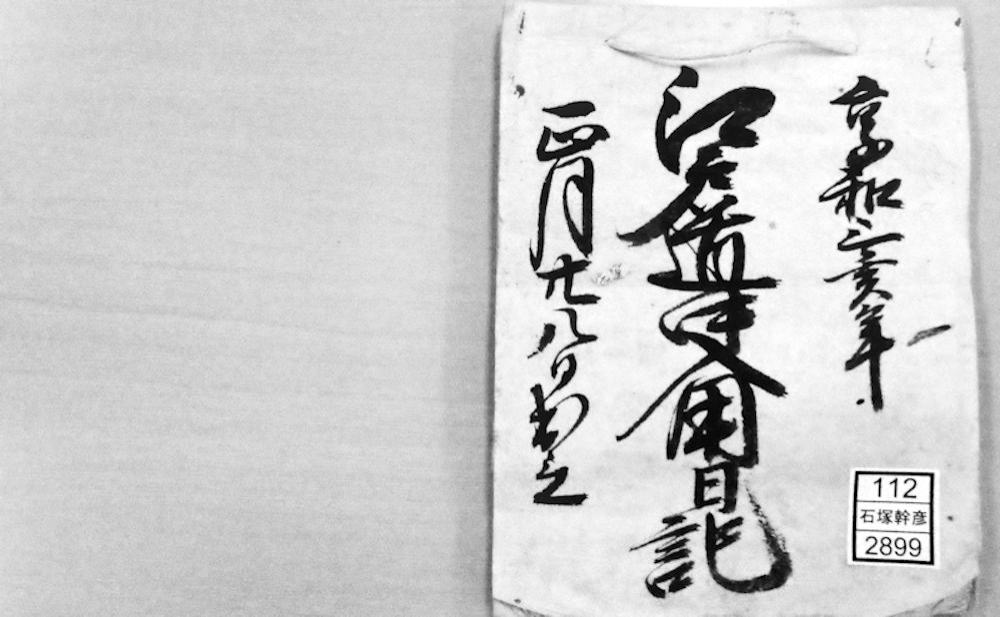 享和三亥年
江戸道中入用日記
正月廿八日出立
112
石塚幹彦
2899